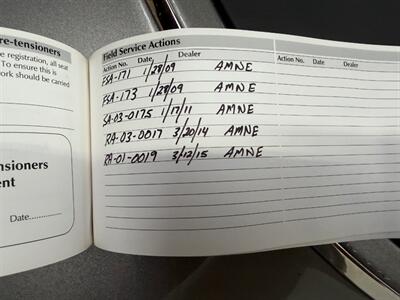 re-tensioners
registration, all seat
To ensure this is
work should be carried
ensioners
ent
Date....................
Field Service Actions
Action No. Date Dealer
Action No. Date Dealer
FSA-171 1/28/09 AMNE
FSA-173 1/28/09 AMNE
SA-03-0175 1/17/11 AMNE
RA-03-0017 3/20/14 AMNE
RA-01-0019 3/12/15 AMNE